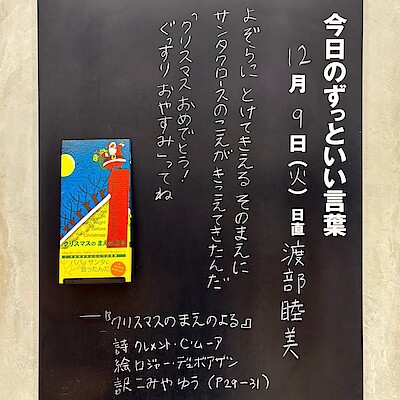 今日のずっといい言葉
12月9日(火) 日直 渡部睦美
よぞらに とけてきえる そのまえに
サンタクロースのこえが きこえてきたんだ
「クリスマスおめでとう!
ぐっすり おやすみ」ってね
―『クリスマスのまえのよる』
詩 クレメント・C・ムーア
絵 ロジャー・デュボアザン
訳 こみやゆう (P29-31)
Night
Before
Christmas
クリスマスの まえのよる
パパはサンタに
会ったんだ